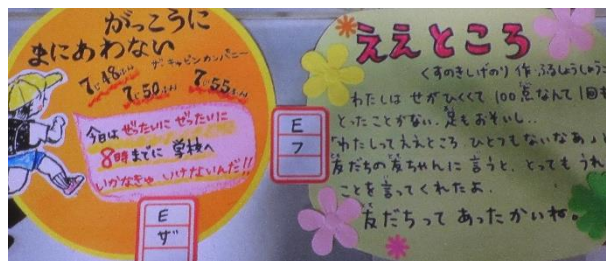 がっこうに
まにあわない
ザ・キャビンカンパニー
7じ48ぷん
7じ50ぷん
7じ55ふん
今日はぜったいに ぜったいに
8時までに 学校へ
いかなきゃ いけないんだ!!
E
ザ
E
フ
ええところ
くすのきしげのり 作・ふるしょうようこ
わたしは せがひくくて 100点なんて 1回も
とったことがない。足もおそいし。
「わたしってええところ ひとつもないなあ。」
友だちの友ちゃんに 言うと、とっても うれ
ことを言ってくれたよ。
友だちって あったかいね。